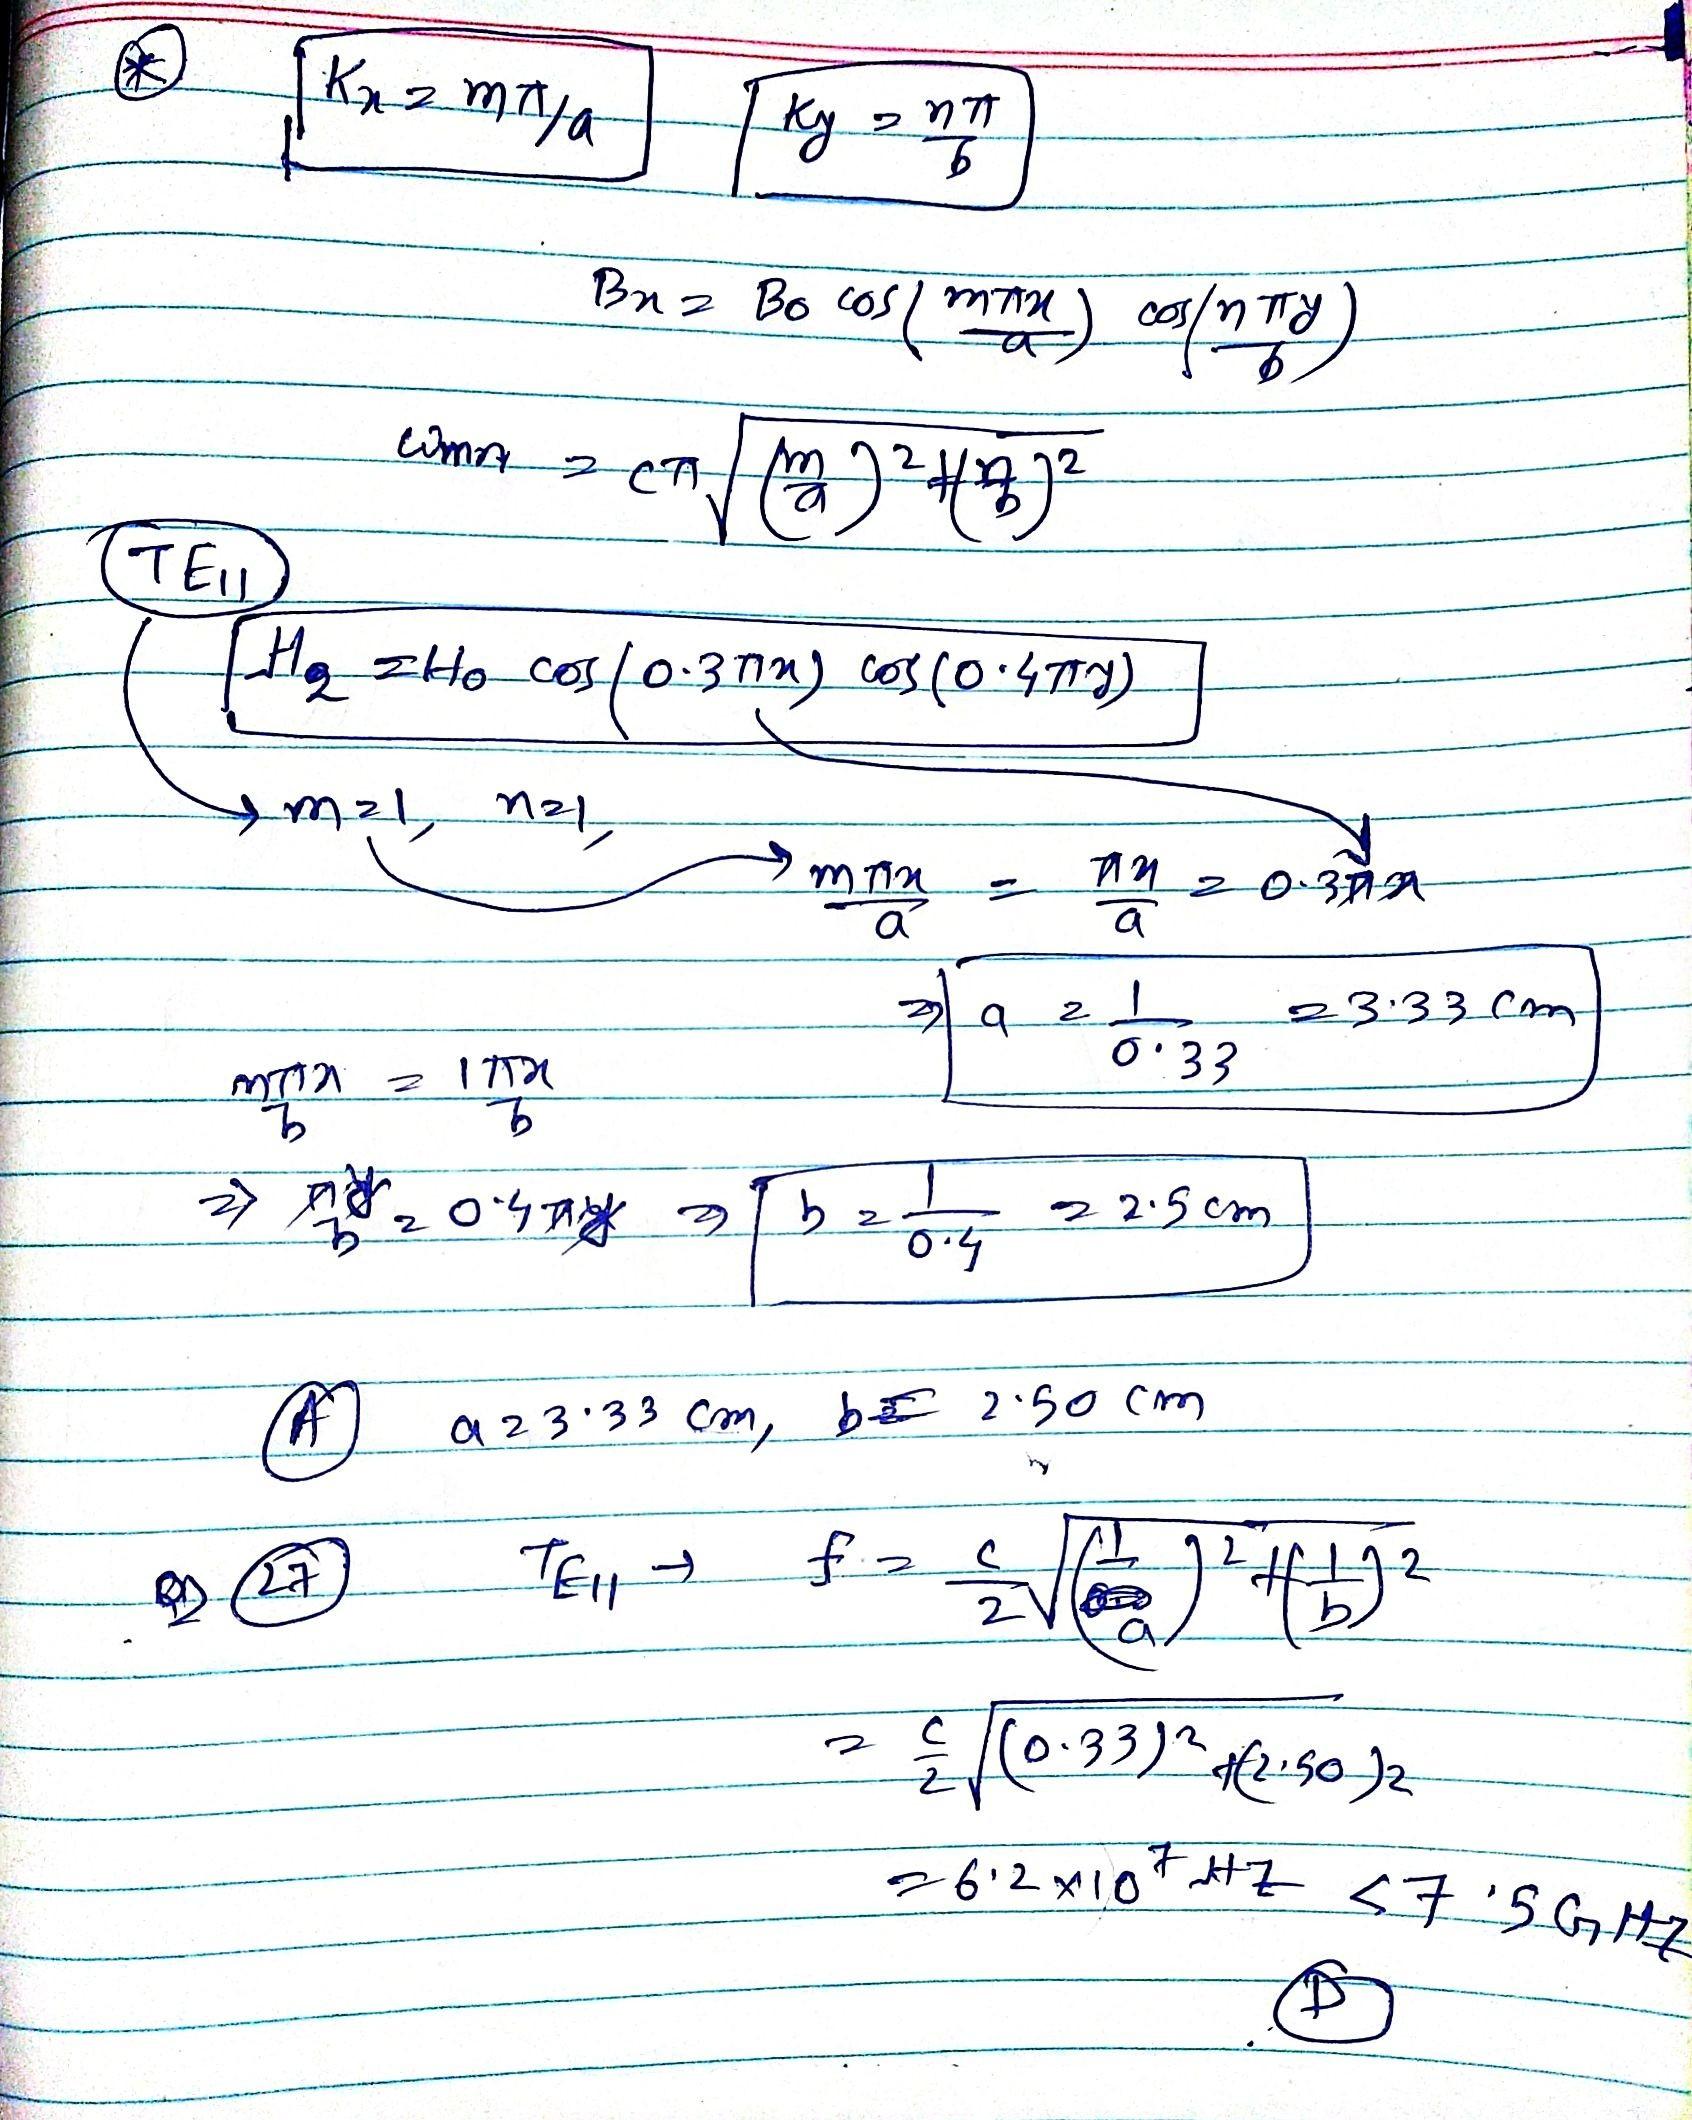 * Kx = mπ/a Ky = nπ/b
Bx = B0 cos(mπx/a) cos(nπy/b)
ωmn = cπ√((m/a)²+(n/b)²)
TE11
Hz = H0 cos(0.3πx) cos(0.4πy)
→ m=1, n=1,
→ mπx/a = πx/a = 0.3πx
⇒ a = 1/0.33 = 3.33 cm
nπx/b = 1πx/b
⇒ πy/b = 0.4πy ⇒ b = 1/0.4 = 2.5 cm
A a = 3.33 cm, b = 2.50 cm
27 TE11 → f = c/2 √((1/a)²+(1/b)²)
= c/2 √((0.33)²+(2.50)²
= 6.2×10⁷ HZ < 7.5 GHZ
D